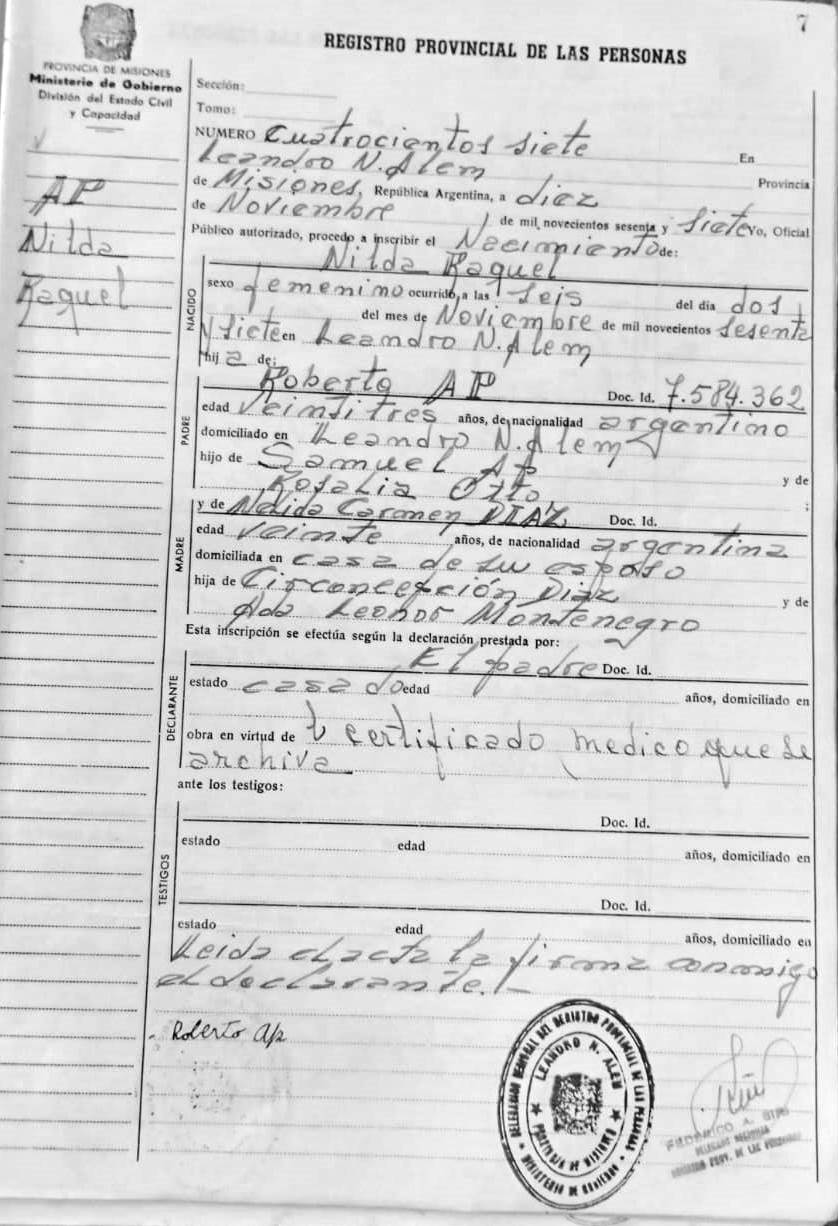 7
REGISTRO PROVINCIAL DE LAS PERSONAS
PROVINCIA DE MISIONES
Ministerio de Gobierno
División del Estado Civil
y Capacidad
AP
Nilda
Raquel
Sección:
Tomo:
NUMERO Cuatrocientos siete
En
Leandro N. Alem
Provincia
de Misiones, República Argentina, a diez
de Noviembre de mil novecientos sesenta y siete Yo, Oficial
Público autorizado, procedo a inscribir el Nacimiento de:
NACIDO
Nilda Raquel
sexo femenino ocurrido a las seis del día dos
del mes de Noviembre de mil novecientos sesenta
y siete en Leandro N. Alem
hija de:
PADRE
Roberto AP Doc. Id. 7.584.362
edad veintitres años, de nacionalidad argentino
domiciliado en Leandro N. Alem
hijo de Samuel Ap y de
Rosalia Otto ;
MADRE
y de Nelida Carmen DIAZ Doc. Id.
edad veinte años, de nacionalidad argentina
domiciliada en casa de su esposo
hija de Circoncepción Diaz y de
Ada Leonor Montenegro
Esta inscripción se efectúa según la declaración prestada por:
DECLARANTE
El padre Doc. Id.
estado casado edad años, domiciliado en
obra en virtud de certificado medico que se
archiva
ante los testigos:
TESTIGOS
Doc. Id.
estado edad años, domiciliado en
Doc. Id.
estado edad años, domiciliado en
Leida el acta la firma conmigo
el declarante.-
Roberto Ap
DELEGACION REGIONAL DEL REGISTRO PROVINCIAL DE LAS PERSONAS
LEANDRO N. ALEM
PROVINCIA DE MISIONES
MINISTERIO DE GOBIERNO
FEDERICO A.
DELEGADO REGIONAL
PROV. DE LAS PERSONAS